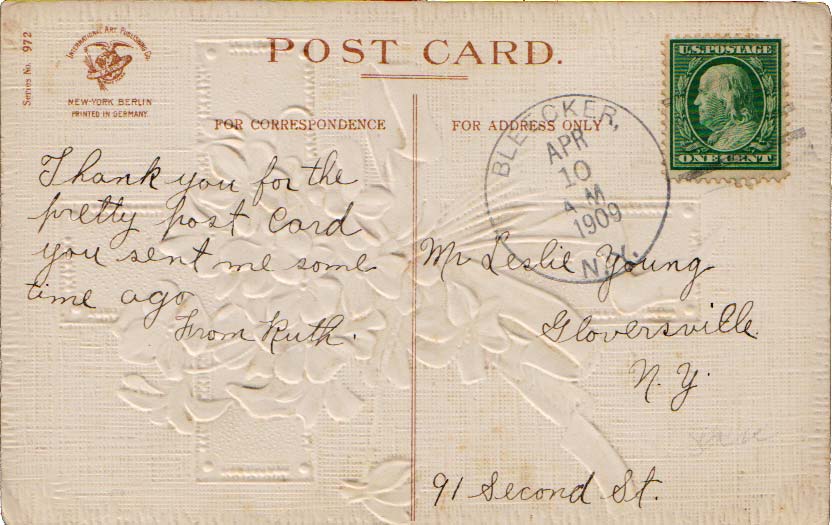 Series No. 972
INTERNATIONAL ART PUBLISHING Co.
NEW-YORK BERLIN
PRINTED IN GERMANY
POST CARD.
FOR CORRESPONDENCE
FOR ADDRESS ONLY
U.S. POSTAGE
ONE CENT
BLEECKER,
APR
10
A.M
1909
N.Y.
Thank you for the
pretty post card
you sent me some
time ago
From Ruth.
Mr Leslie Young
Gloversville
N.Y.
91 Second St.